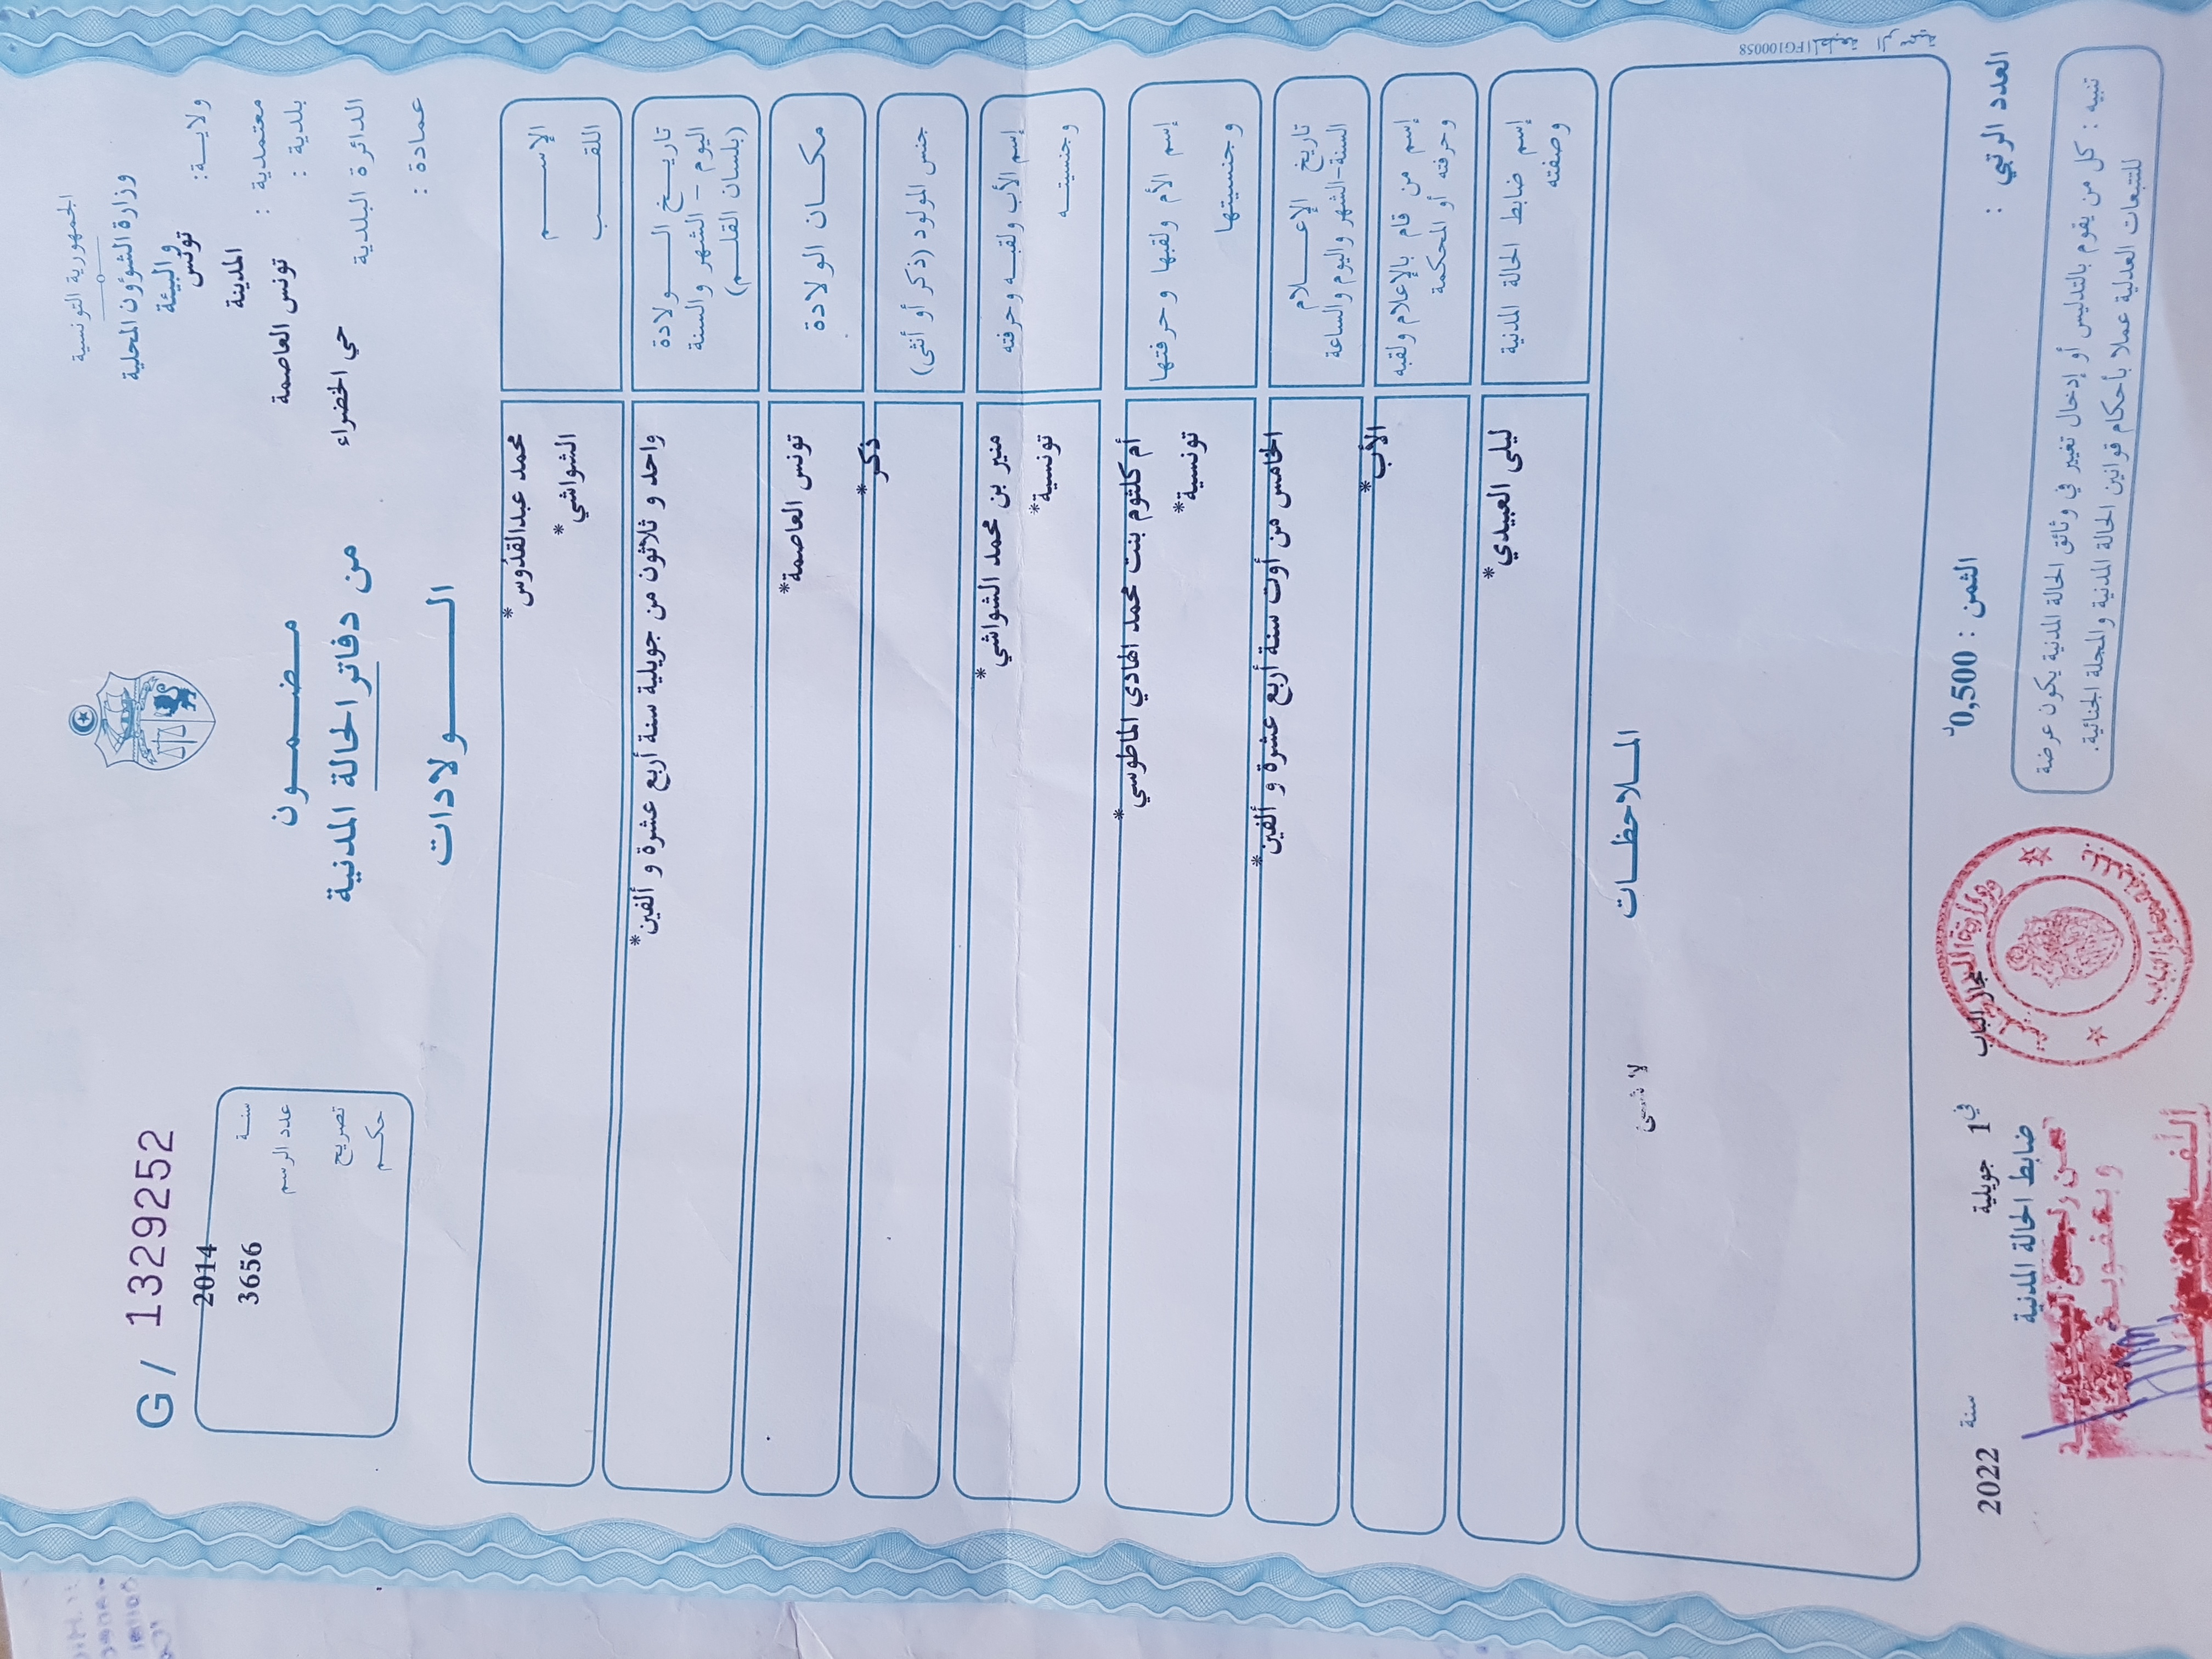 الجمهورية التونسية
وزارة الشؤون المحلية
والبيئة
ولايــة: تونس
معتمدية : المدينة
بلدية : تونس العاصمة
الدائرة البلدية حي الخضراء
عمادة :
G / 1329252
سنــة 2014
عدد الرسم 3656
تصريح
حكــم
مـضـمــون
من دفاتر الحالة المدنية
الــولادات
الإســـم محمد عبدالقدوس*
اللقــب الشواشي*
تاريــخ الـــولادة
اليوم - الشهر والسنة
(بلسان القلــم)
واحد و ثلاثون من جويلية سنة أربع عشرة و ألفين*
مكــان الولادة تونس العاصمة*
جنس المولود (ذكر أو أنثى) ذكر*
إسم الأب ولقبـه وحرفته منير بن محمد الشواشي*
وجنسيتــه تونسية*
إسم الأم ولقبها وحرفتها أم كلثوم بنت محمد الهادي الماطوسي*
وجنسيتها تونسية*
تاريخ الإعــلام
السنة-الشهر واليوم والساعة
الخامس من أوت سنة أربع عشرة و ألفين*
إسم من قام بالإعلام ولقبه
وحرفته أو المحكمة
الأب*
إسم ضابط الحالة المدنية
وصفته
ليلى العبيدي*
المـلاحظــات
لا شيئ
FG100058
العدد الرتبي :
الثمن : 0,500د
مجاز الباب في 1 جويلية سنة 2022
ضابط الحالة المدنية
تنبيه : كل من يقوم بالتدليس أو إدخال تغيير في وثائق الحالة المدنية يكون عرضة
للتتبعات العدلية عملا بأحكام قوانين الحالة المدنية والمجلة الجنائية.